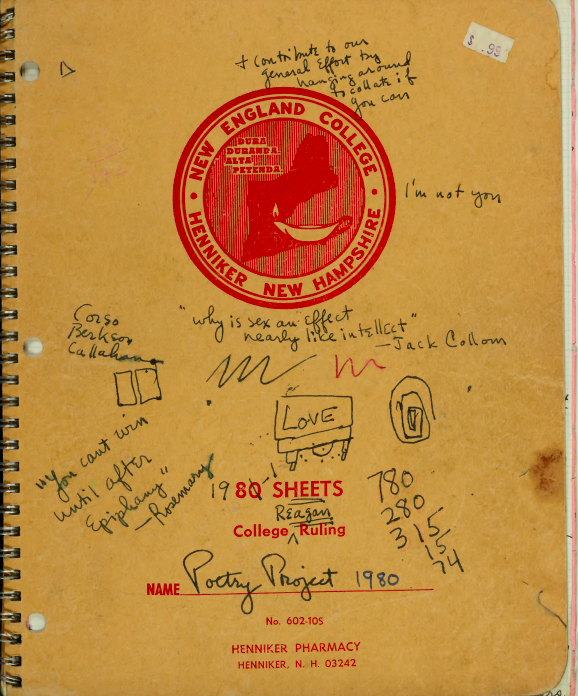 + contribute to our
general effort try
hanging around
to collate if
you can
$ .99
NEW ENGLAND COLLEGE
DURA
DURANDA
ALTA
PETENDA
HENNIKER NEW HAMPSHIRE
I'm not you
Corso
Berkson
Callahan
"why is sex an effect
nearly like intellect"
—Jack Collom
LOVE
"you cant win
until after
Epiphany"
—Rosemary
1980 SHEETS
Reagan
College ^ Ruling
780
280
315
15
74
NAME Poetry Project 1980
No. 602-10S
HENNIKER PHARMACY
HENNIKER, N. H. 03242